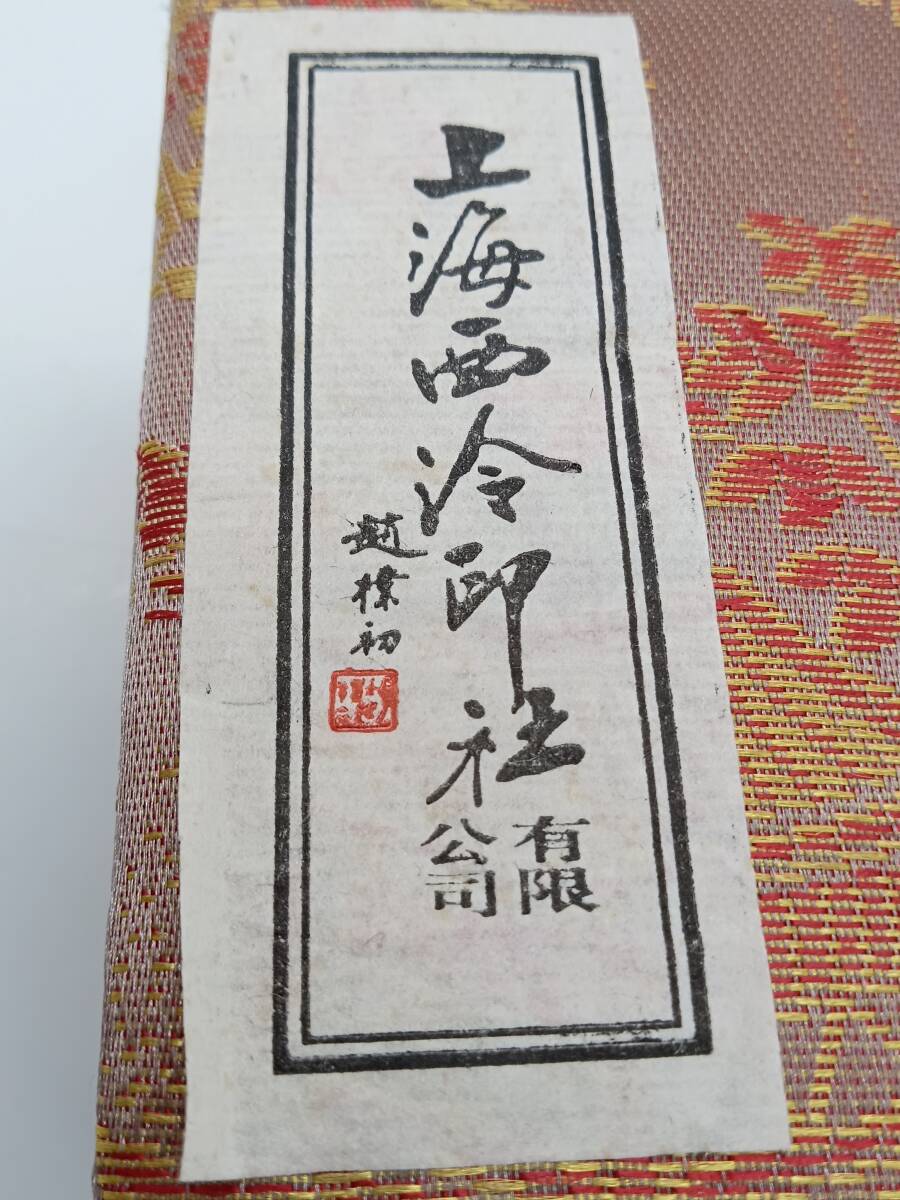 上海西泠印社
有限
公司
趙樸初